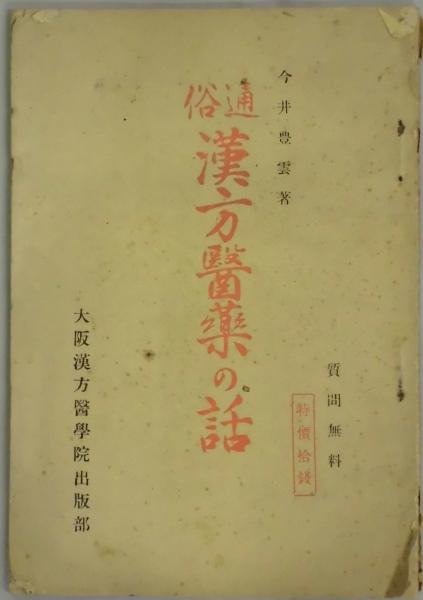 今井豊雲著
通俗
漢方醫藥の話
質問無料
特價拾錢
大阪漢方醫學院出版部